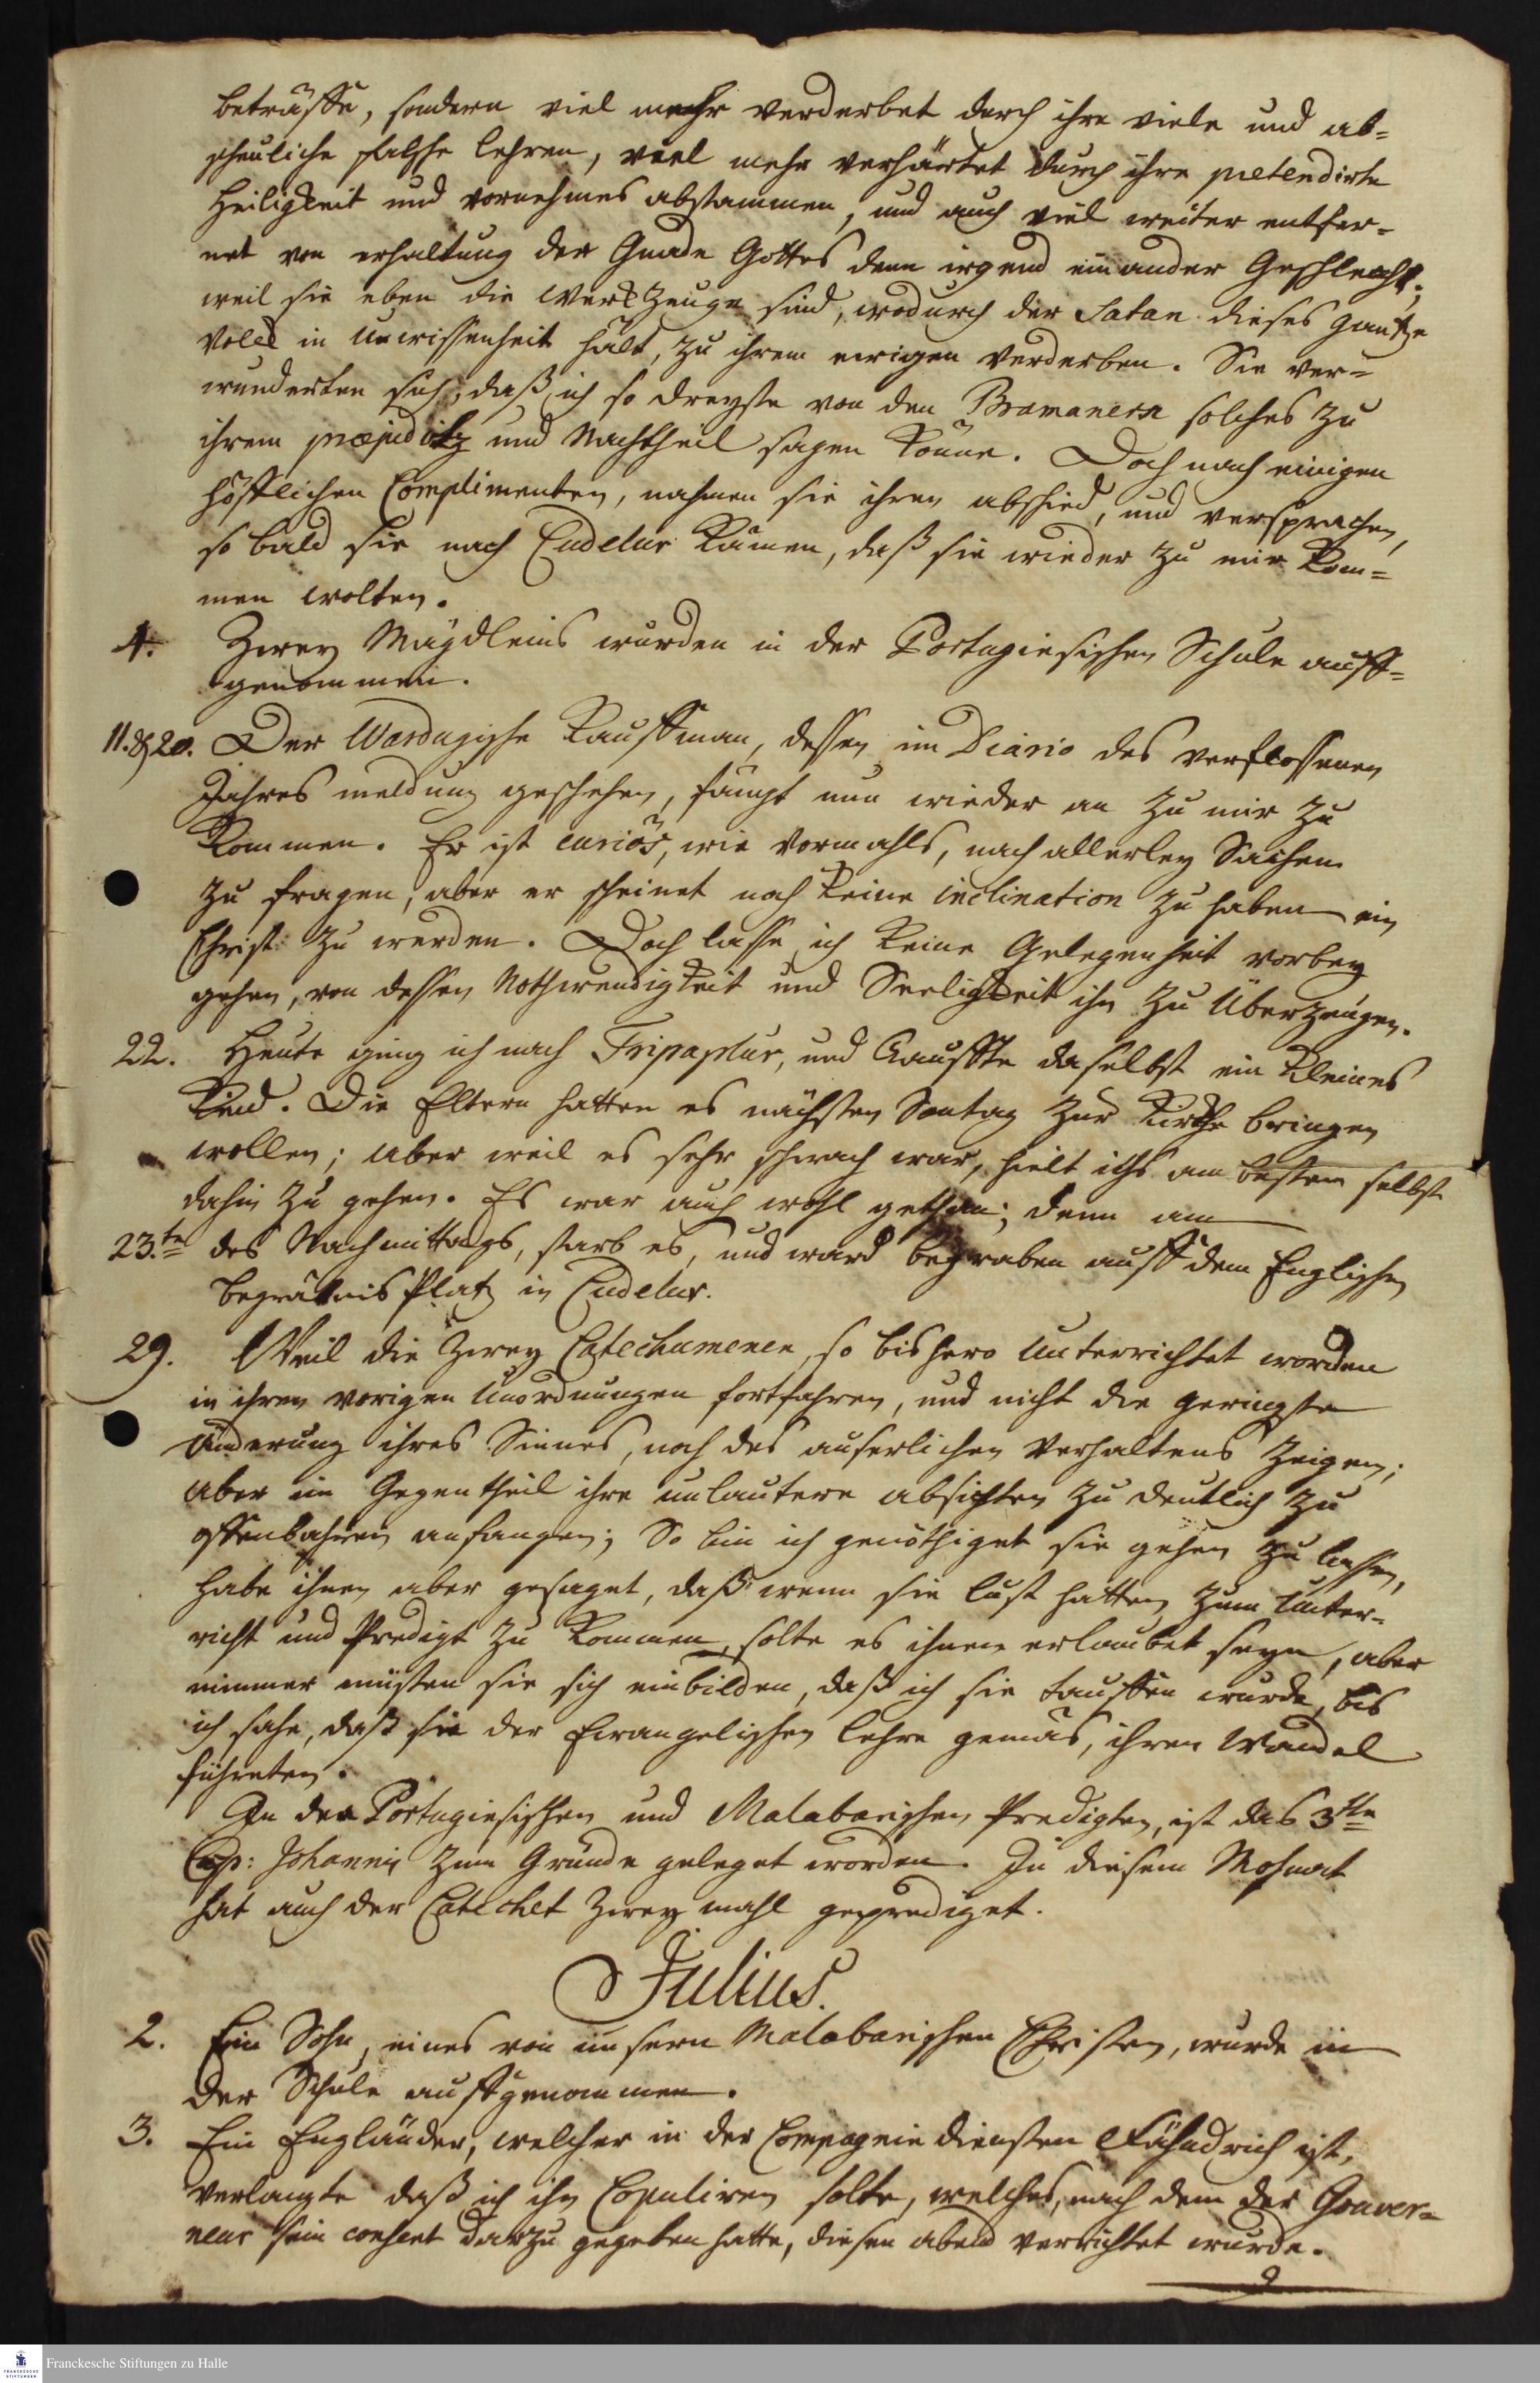 beträffe, sondern viel mehr verderbet durch ihre viele und ab=
scheuliche falsche lehren, viel mehr verhärtet durch ihre pretendirte
Heiligkeit und vornehmes abstammen, und auch viel weiter entfer=
net von erhaltung der Gnade Gottes denn irgend ein ander Geschlecht;
weil sie eben die Werckzeuge sind, wodurch der Satan dieses gantze
Volck in Unwissenheit hält, zu ihrem ewigen Verderben. Sie ver=
wunderten sich, daß ich so dreyste von den Bramanern solches zu
ihrem præjuditz und Nachtheil sagen könne. Doch nach einigen
höfflichen Complimenten, nahmen sie ihren abschied, und versprachen,
so bald sie nach Cudelur kämen, daß sie wieder zu mir kom=
men wolten.
4. Zwey Mägdleins wurden in der Portugiesischen Schule auff=
genommen.
11. & 20. Der Wardugische Kauffman, dessen im Diario des verflossenen
Jahres meldung geschehen, fängt nun wieder an zu mir zu
kommen. Er ist curiös, wie vormahls, nach allerley Sachen
zu fragen, aber er scheinet noch keine inclination zu haben ein
Christ zu werden. Doch lasse ich keine Gelegenheit vorbey
gehen, von dessen Nothwendigkeit und Seeligkeit ihn zu überzeugen.
22. Heute ging ich nach Tripaplur, und tauffte daselbst ein kleines
Kind. Die Eltern hatten es nächsten Sontag zur Kirche bringen
wollen; aber weil es sehr schwach war, hielt ichs am besten selbst
dahin zu gehen. Es war auch wohl gethan; denn am
23.te des Nachmittags, starb es, und ward begraben auff dem Englischen
Begräbnis Platz in Cudelur.
29. Weil die zwey Catechumenen, so bishero unterrichtet worden
in ihren vorigen Unordnungen fortfahren, und nicht die geringste
änderung ihres Sinnes, noch des äuserlichen Verhaltens zeigen;
aber im Gegentheil ihre unlautere absichten zu deutlich zu
offenbahren anfangen; So bin ich genöthiget sie gehen zu lassen,
habe ihnen aber gesaget, daß wenn sie lust hatten zum Unter=
richt und Predigt zu kommen, solte es ihnen erlaubet seyn, aber
nimmer müsten sie sich einbilden, daß ich sie tauffen würde, bis
ich sähe, daß sie der Evangelischen lehre gemäs, ihren Wandel
führeten.
In den Portugiesischen und Malabarischen Predigten, ist das 3te
Cap: Johannis zum Grunde geleget worden. In diesem Mohnat
hat auch der Catechet zwey mahl geprediget.
Julius.
2. Ein Sohn, eines von unsern Malabarischen Christen, wurde in
der Schule auffgenommen.
3. Ein Engländer, welcher in der Compagnie diensten Fähndrich ist,
verlangte daß ich ihn Copuliren solte, welches, nach dem der Gouver=
neur sein consent darzu gegeben hatte, diesen abend verrichtet wurde.
Franckesche Stiftungen zu Halle